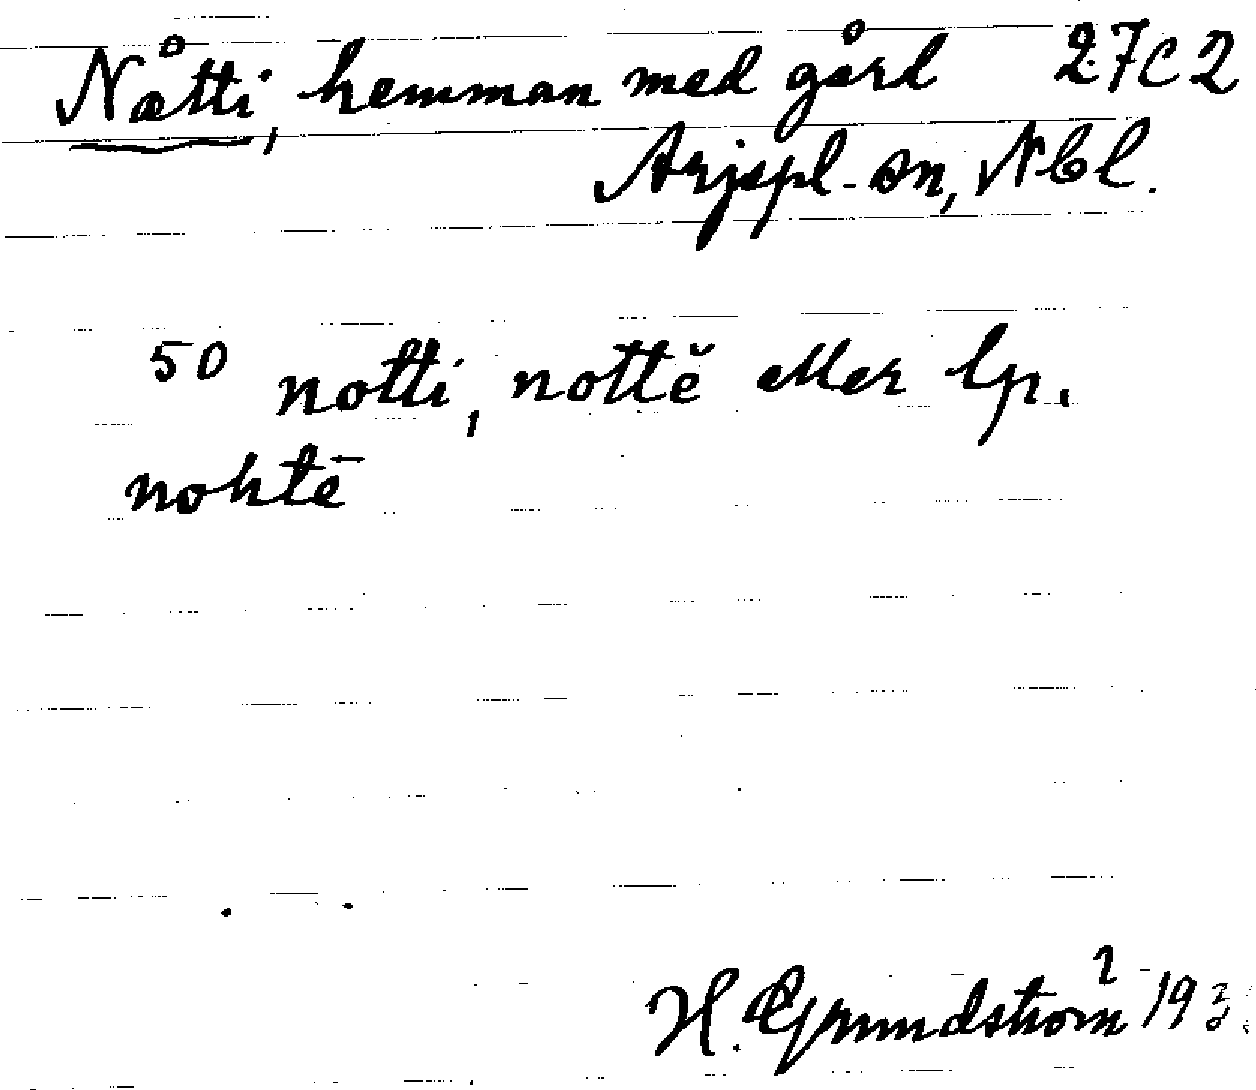 Nåtti, hemman med gård 27C2
Arjepl. sn, Nbl.
50 notti, nottĕ eller lp.
nohtē
H. Grundström 193